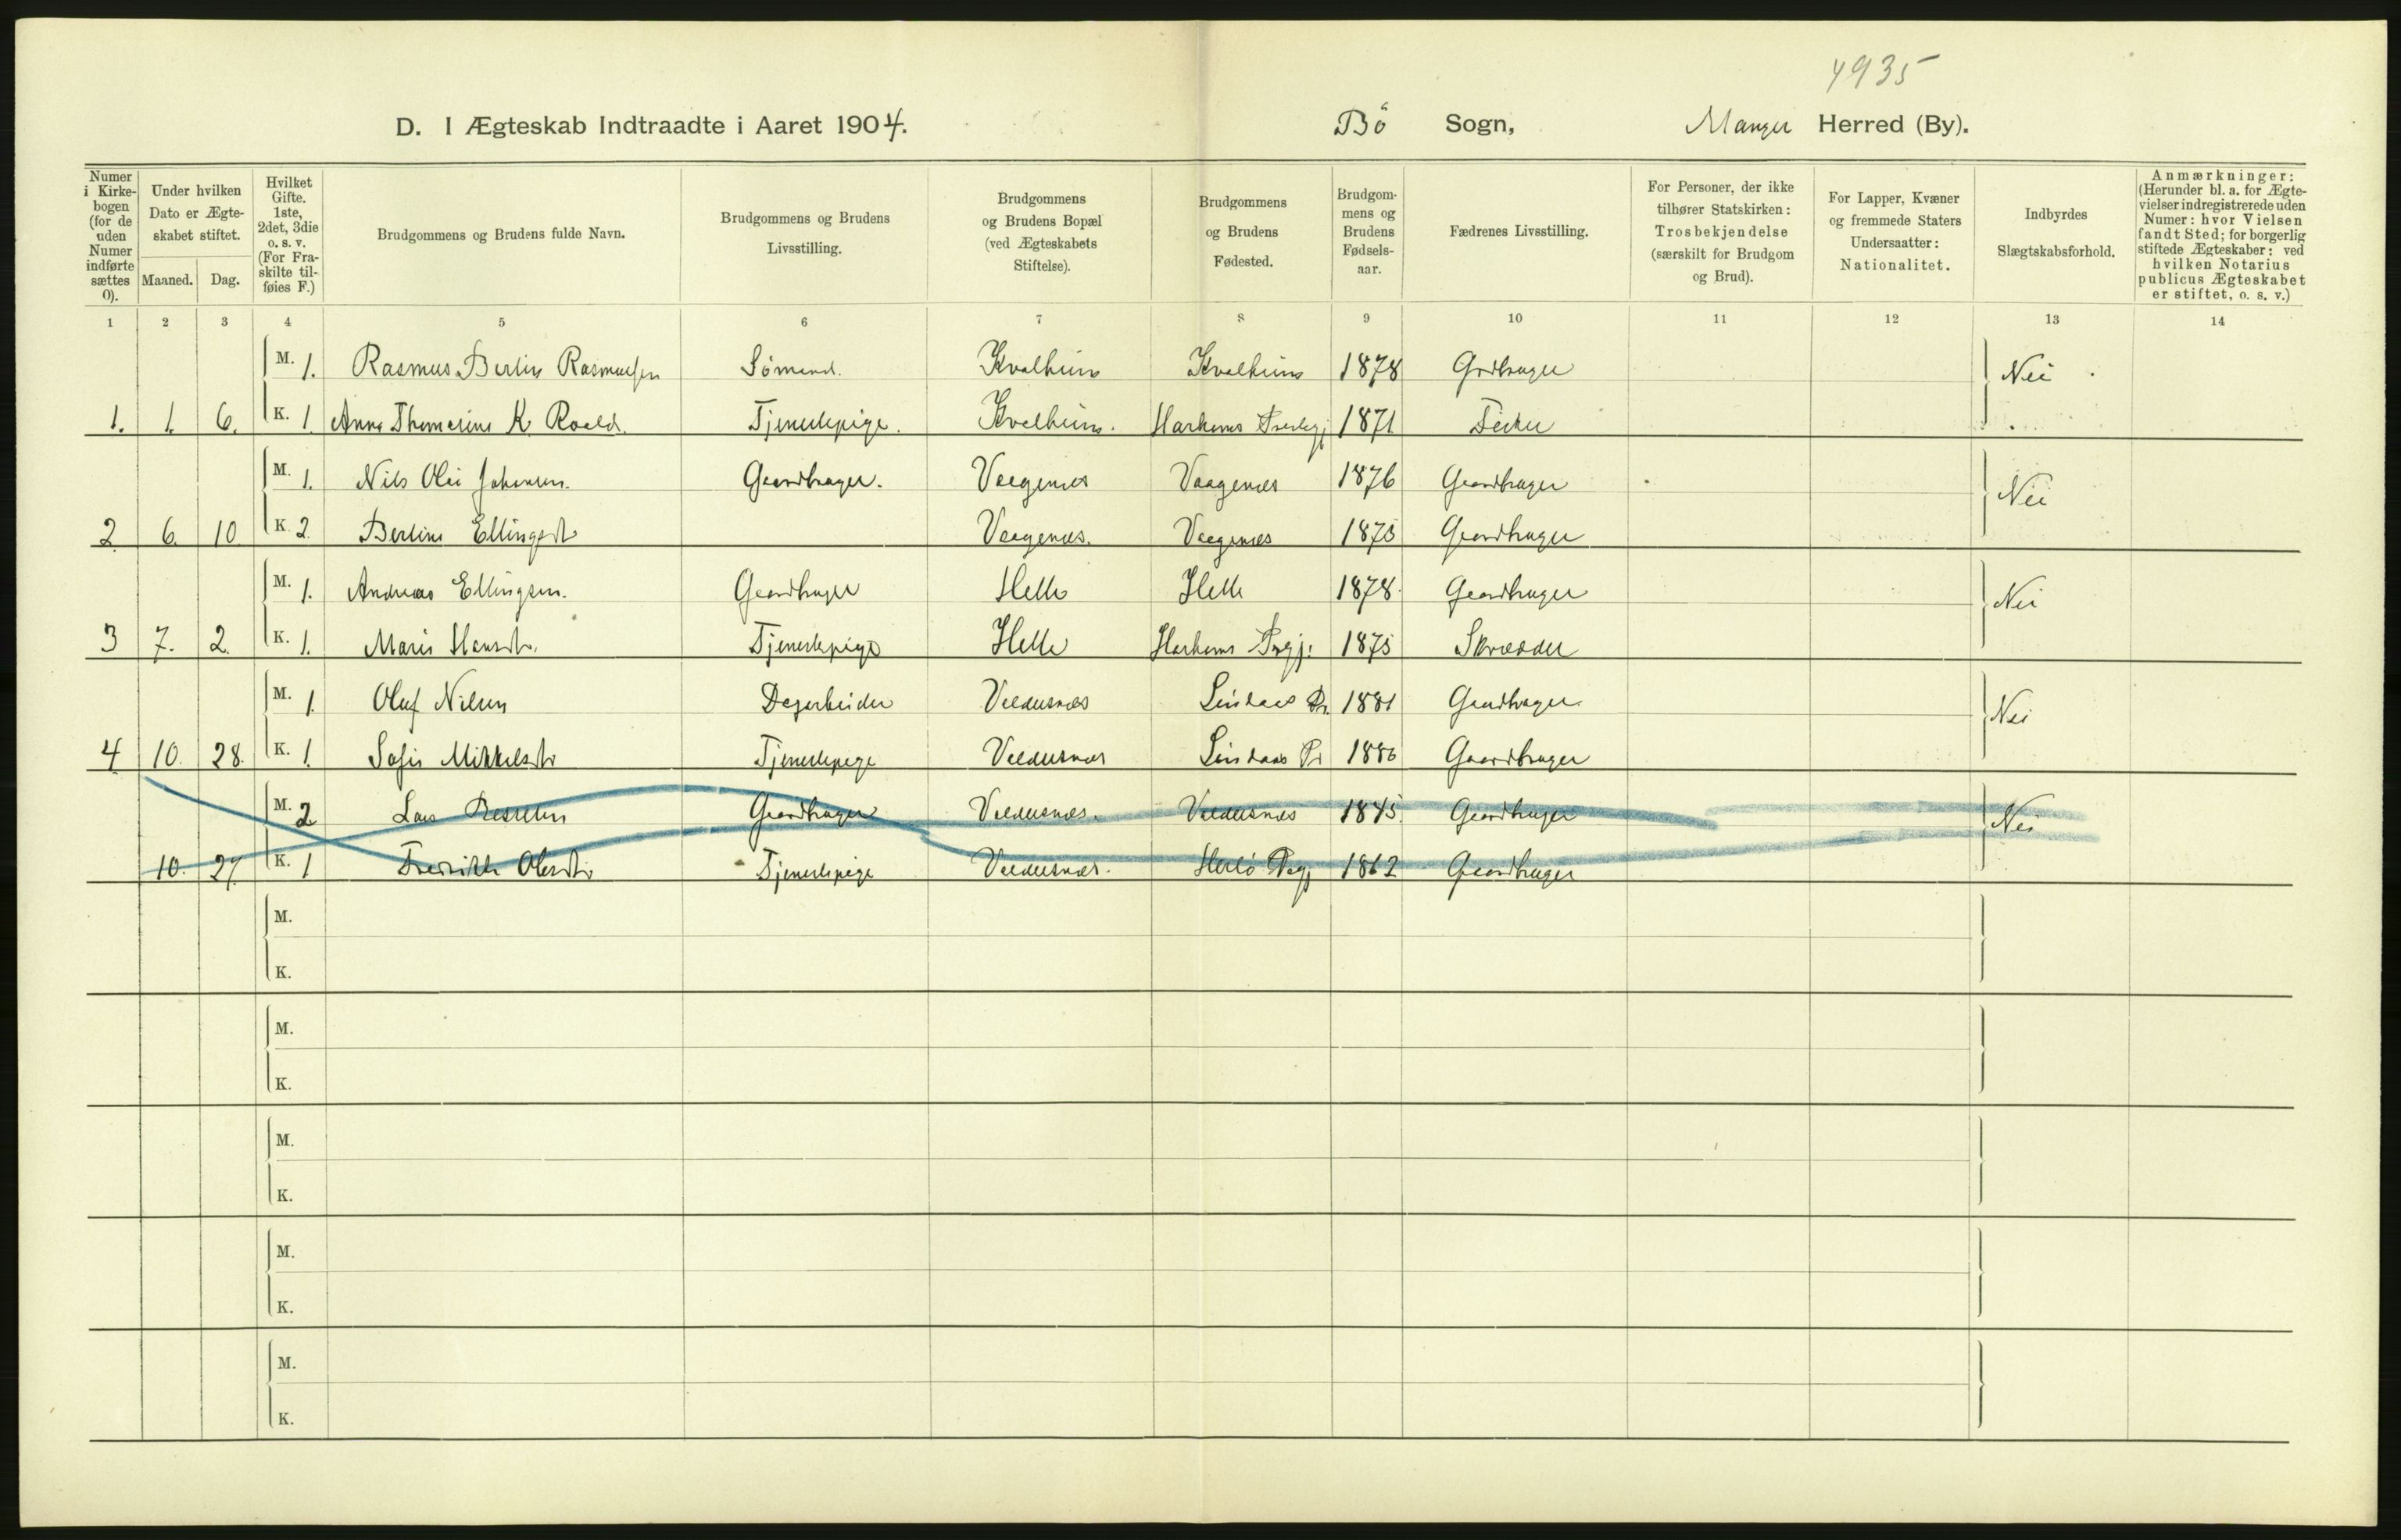 4935
D. I Ægteskab Indtraadte i Aaret 1904. Bö Sogn, Manger Herred (By).
Numer i Kirkebogen (for de uden Numer indførte sættes 0). Under hvilken Dato er Ægteskabet stiftet. Maaned. Dag. Hvilket Gifte. 1ste, 2det, 3die o. s. v. (For Fraskilte tilføies F.) Brudgommens og Brudens fulde Navn. Brudgommens og Brudens Livsstilling. Brudgommens og Brudens Bopæl (ved Ægteskabets Stiftelse). Brudgommens og Brudens Fødested. Brudgommens og Brudens Fødselsaar. Fædrenes Livsstilling. For Personer, der ikke tilhører Statskirken: Trosbekjendelse (særskilt for Brudgom og Brud). For Lapper, Kvæner og fremmede Staters Undersaatter: Nationalitet. Indbyrdes Slægtskabsforhold. Anmærkninger: (Herunder bl. a. for Ægtevielser indregistrerede uden Numer: hvor Vielsen fandt Sted; for borgerlig stiftede Ægteskaber: ved hvilken Notarius publicus Ægteskabet er stiftet, o. s. v.)
1 2 3 4 5 6 7 8 9 10 11 12 13 14
M. 1. Rasmus Bertin Rasmussen Sömand. Kvalheim Kvalheim 1878 Grdbruger Nei
1. 1. 6. K. 1. Anna K. Roald. Tjenestepige. Kvalheim. Harhams 1871
M. 1. Nils Olai Johansen. Gaardbruger. Vaagenes Vaagenes 1876 Gaardbruger Nei
2 6. 10 K. 2. Bertine Ellingsdt Vaagenes. Vaagenes 1875 Gaardbruger
M. 1. Andreas Ellingsen. Gaardbruger Helle Helle 1878. Gaardbruger Nei
3 7. 2. K. 1. Marie Hansdt. Tjenestepige Helle Harhams Prgj: 1875 Skrædder
M. 1 Oluf Nilsen Dagarbeider Valdersnes Lindaas Pr. 1881 Gaardbruger Nei
4 10. 28. K. 1. Sofie Mikkelsdt Tjenestepige Valdersnes Lindaas Pr 1880 Gaardbruger
M. 2 Lars Gaardbruger Valdersnes. Valdersnes 1845. Gaardbruger Nei
10. 27. K. 1 Fredrikke Olesdt Tjenestepige Valdersnes. Herlö Prgj 1862 Gaardbruger
M.
K.
M.
K.
M.
K.
M.
K.
M.
K.